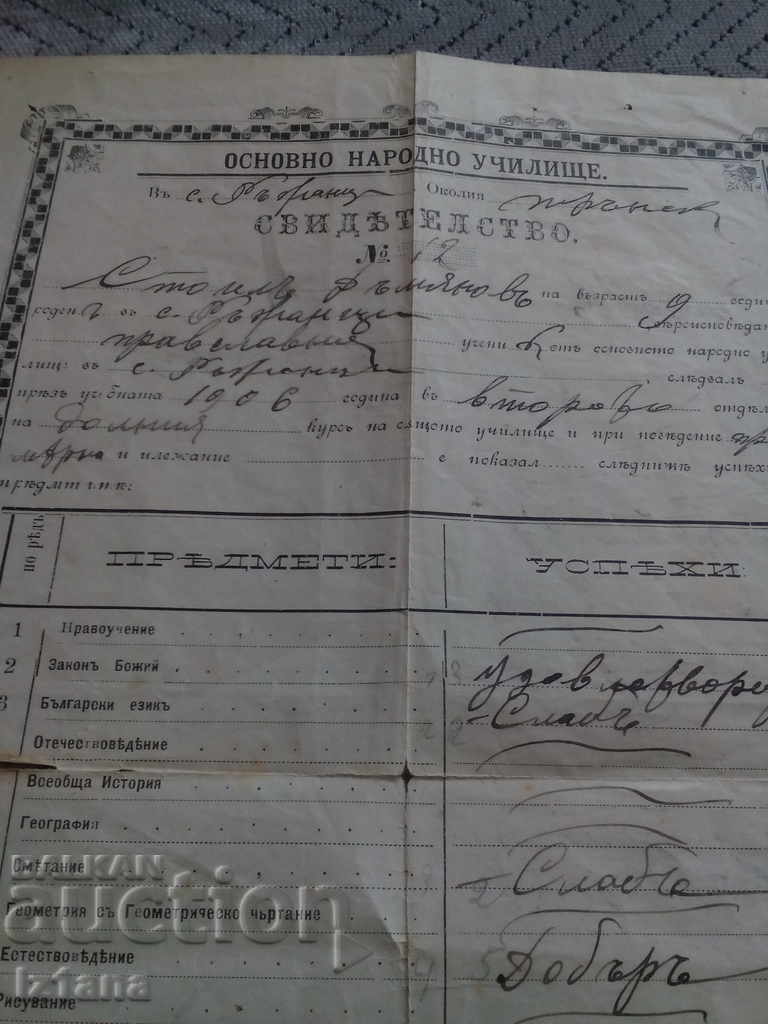 ОСНОВНО НАРОДНО УЧИЛИЩЕ.
Въ с. Ръжанци Околия трънск
СВИДѢТЕЛСТВО.
№ 12
Стоилъ Румяновъ на възрастъ 9 един
роденъ въ с. Ръжанци вѣроисповѣдан
православния учени кътъ основното народно у
лищ: въ с. Ръжанци слѣдвалъ
прѣзъ учебната 1906 година въ второто отдѣл
на долния курсъ на сящото училище и при повѣдение пр
мѣрно и илежание е показал...... слѣднитѣ успѣх
по рѣдъ ПРѢДМЕТИ: УСПѢХИ
1 Нравоучение
2 Законъ Божий удовлетворе
3 Български езикъ Слабъ
Отечествовѣдение
Всеобща История
География
Смѣтание 2 Слабъ
Геометрия съ Геометрическо чъртание
Естествовѣдение 5 Добъръ
Рисувание
BALKAN
auction
Iz1ana